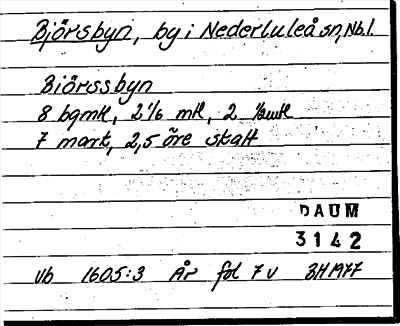 Björsbyn, by i Nederluleå sn, Nb.l.
Biörssbyn
8 bgmk, 2 1/6 mk, 2 1/2 wk
7 mart, 2,5 öre skatt
DAUM
3142
Vb 1605:3 År fol 7 v BH 1977